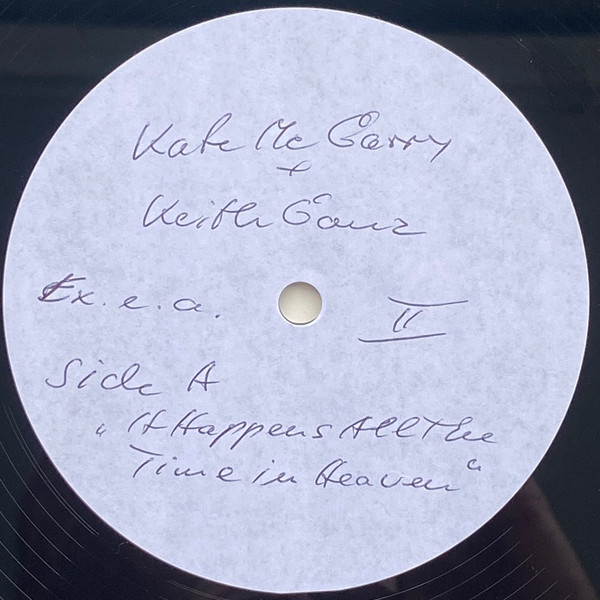 Kate Mc Garry
+
Keith Ganz
Ex. e. a. II
Side A
„It Happens All The
Time in Heaven“